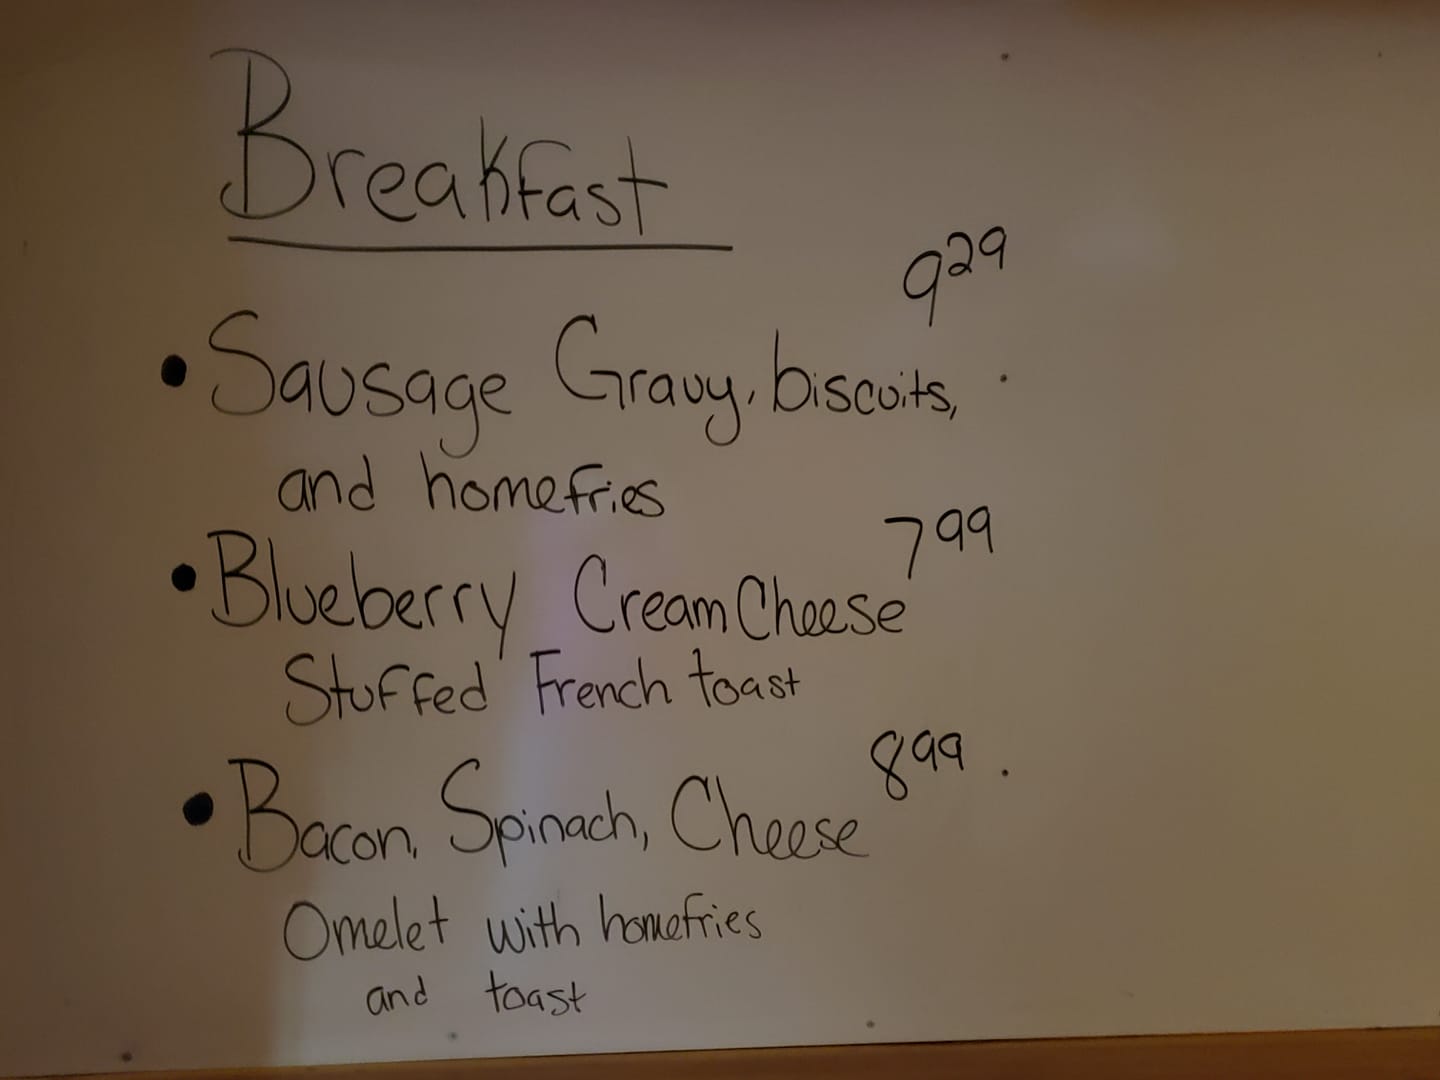 Breakfast
9 29
• Sausage Gravy, biscuits,
and homefries
7 99
• Blueberry Cream Cheese
Stuffed French toast
8 99
• Bacon, Spinach, Cheese
Omelet with homefries
and toast